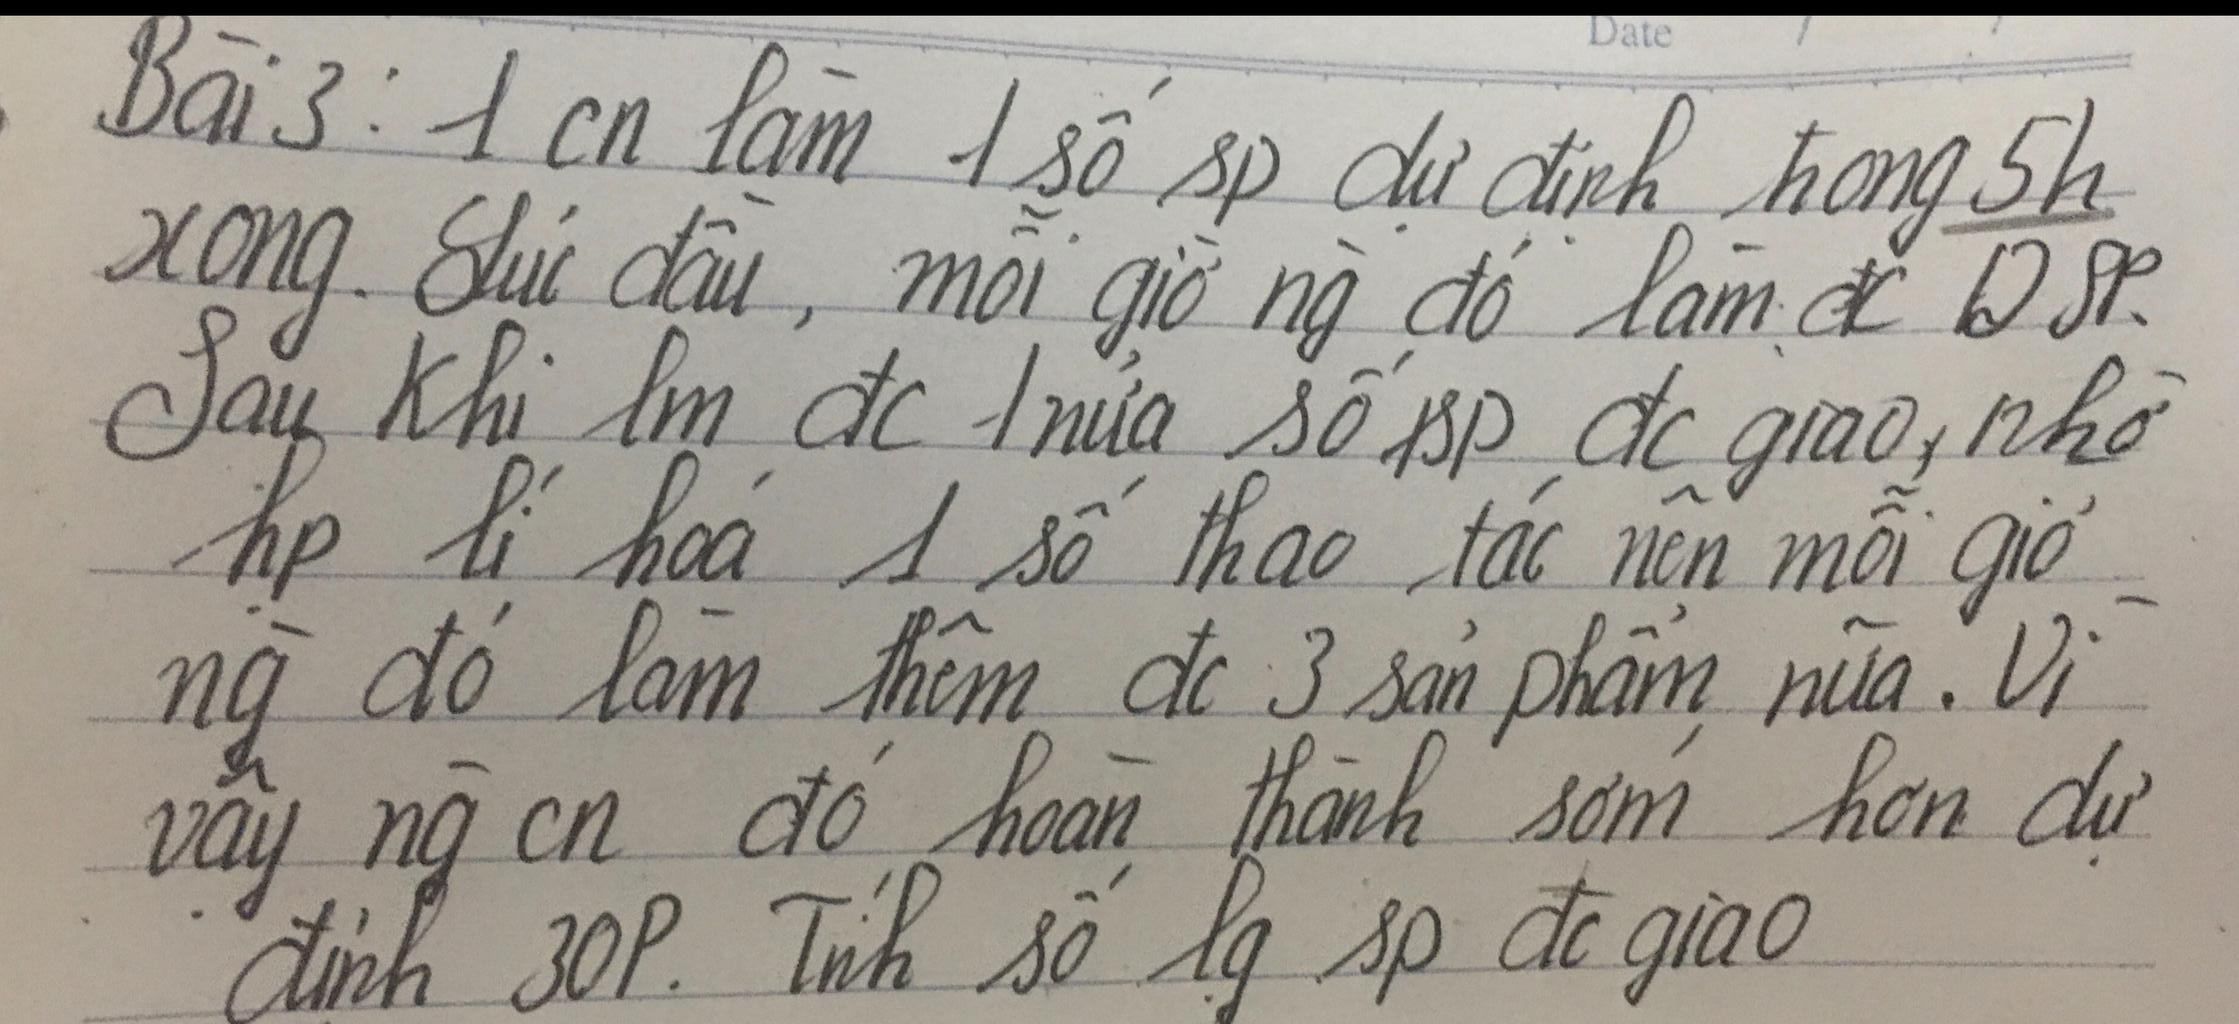 Date / /
Bài 3: 1 cn làm 1 số sp dự định trong 5h
xong. Lúc đầu, mỗi giờ ng đó làm đc 12 SP.
Sau khi lm đc 1 nửa số sp đc giao, nhờ
hp lí hoá 1 số thao tác nên mỗi giờ
ng đó làm thêm đc 3 sản phẩm nữa. Vì
vậy ng cn đó hoàn thành sớm hơn dự
định 30P. Tính số lg sp đc giao